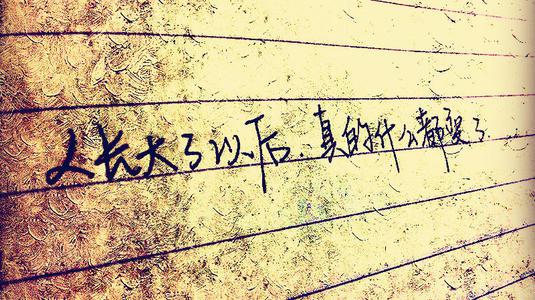 人长大了以后、真的什么都变了